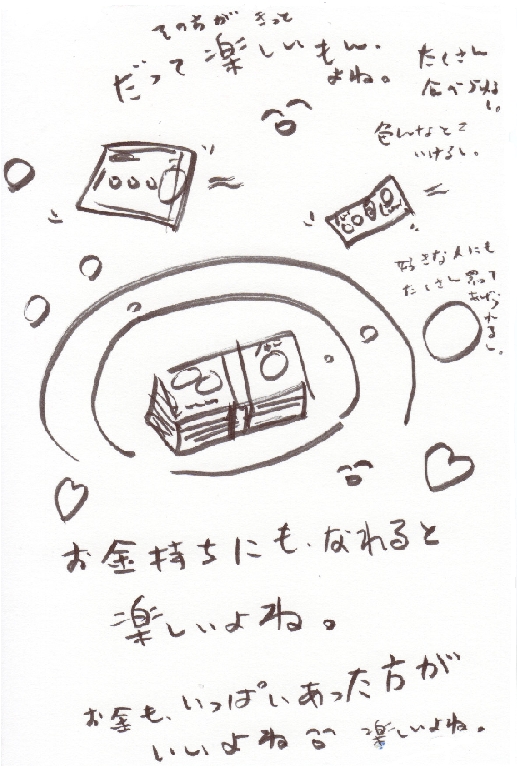 その方が きっと
だって 楽しいもん。
よね。
たくさん
食べられるし。
色んなとこ
いけるし。
好きな人にも
たくさん 買って
あげられるし。
お金持ちにも、なれると
楽しいよね。
お金も、いっぱいあった方が
いいよね 楽しいよね。